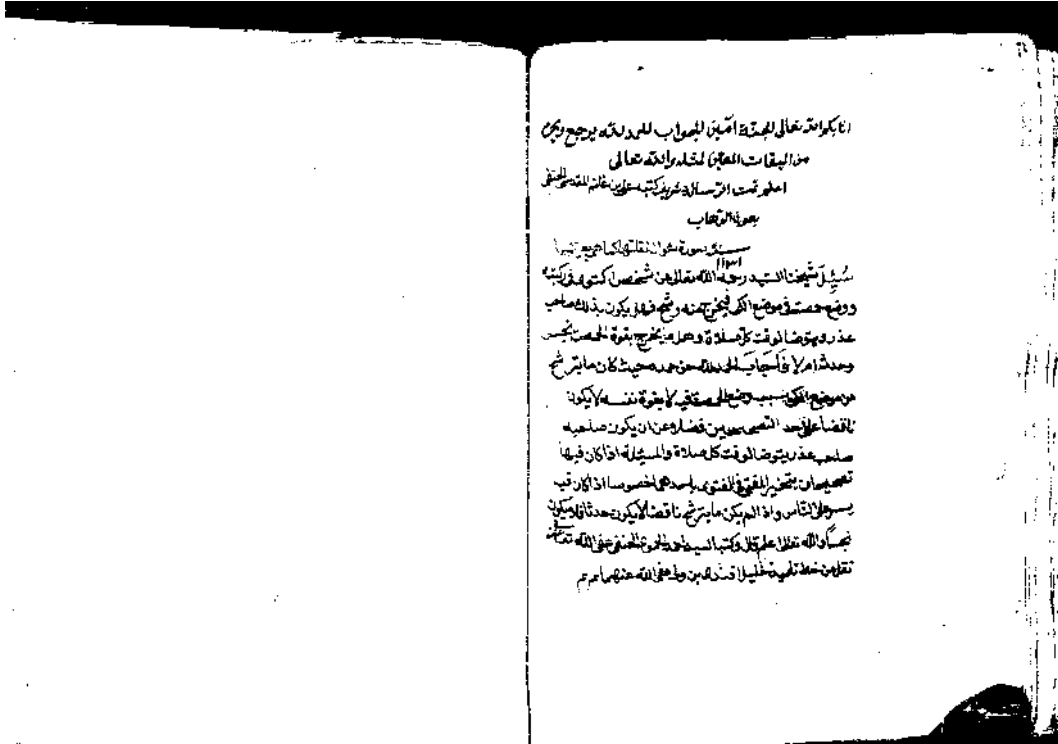 اثابكم الله تعالى الجنة امين الجواب الحمد لله يرجع ويحرم
من الميقات المعين لمثله والله تعالى
اعلم تمت الرسالة شريف كتبه علي بن غانم المقدسي الحنفي
بعون الوهاب
صورة سؤال
سُئِلَ شيخنا السيد رحمه الله تعالى عن شخص اكتوى في ركبته
ووضع حمصة في موضع الكي فيخرج منه رشح فهل يكون بذلك صاحب
عذر ويتوضا لوقت كل صلاة وهل ما يخرج بقوة الحمصة نجس
وحدث ام لا فَاَجَابَ الحمد لله حق حمده حيث كان ما يترشح
من موضع الكي بسبب وضع الحمصة فيه لا بقوة نفسه لا يكون
ناقضا على احد التصحيحين فضلا عن ان يكون صاحبه
صاحب عذر يتوضا لوقت كل صلاة والمسئلة اذا كان فيها
تصحيحان يتخير المفتي في الفتوى باحدهما خصوصا اذا كان فيه
يسر على الناس واذا لم يكن ما يترشح ناقضا لا يكون حدثا فلا يكون
نجساً والله تعالى اعلم قال وكتبه السيد احمد الحموي الحنفي عفى الله تعالى عنه
نقل من خط تلميذه خليل بن ولي عفى الله عنهما تم تم